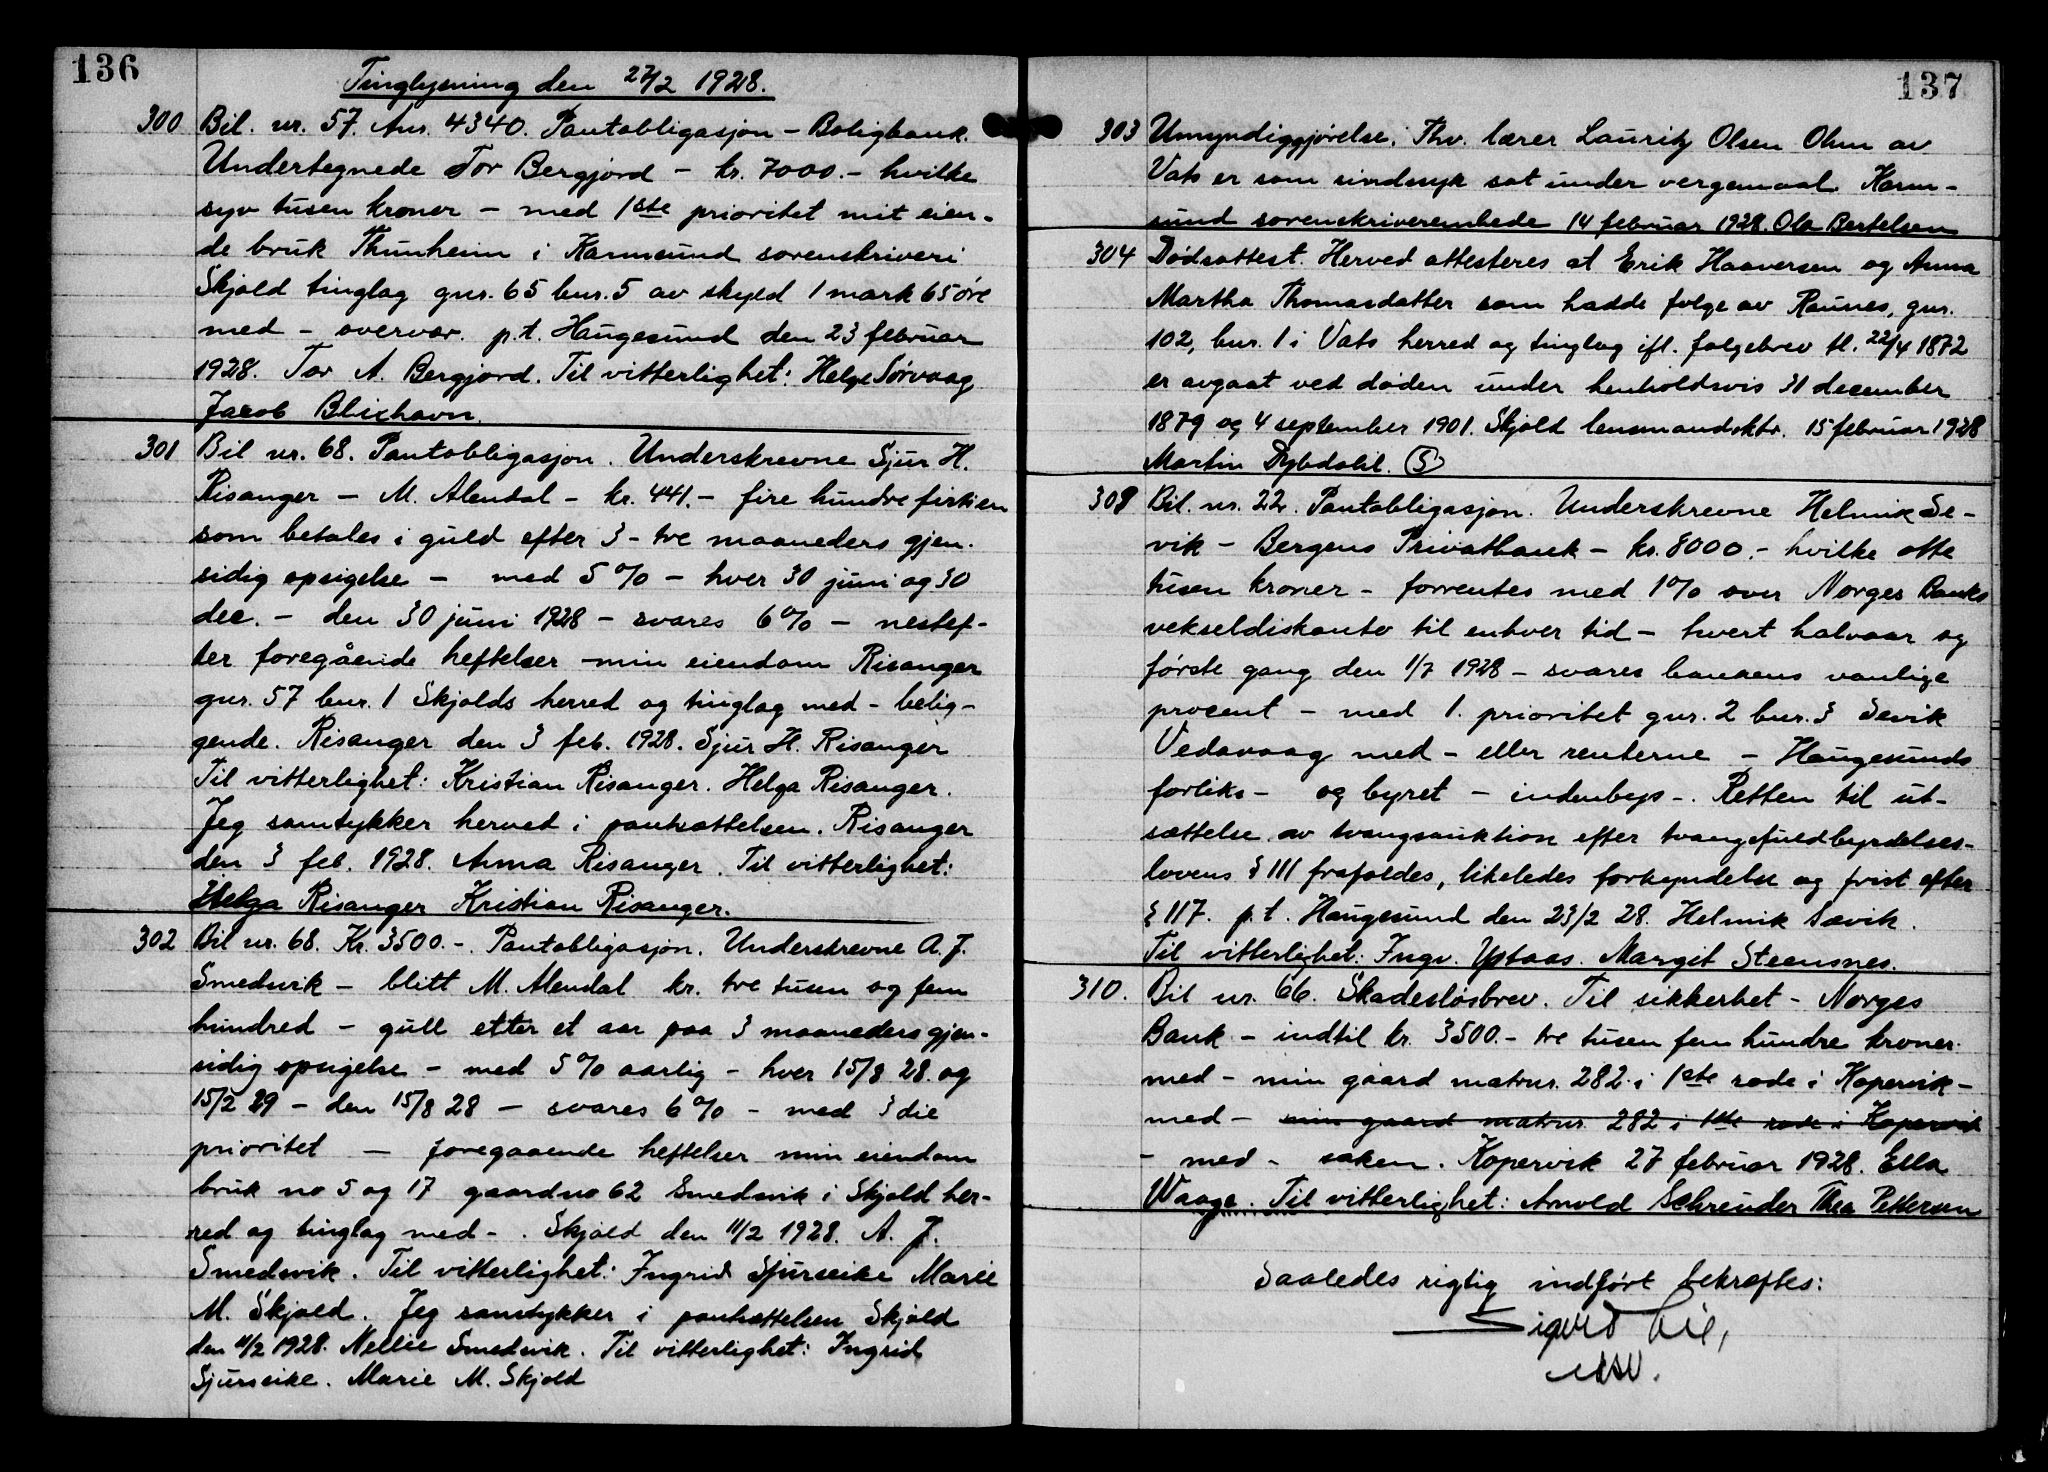 136
Tinglysning den 27/2 1928.
300 Bil. nr. 57. Anr. 4340. Pantobligasjon – Boligbank.
Undertegnede Tor Bergjord – kr. 7000.– hvilke
syv tusen kroner – med 1ste prioritet mit eien-
de bruk Thunheim i Karmsund sorenskriveri
Skjold tinglag gnr. 65 bnr. 5 av skyld 1 mark 65 øre
med – overvær. p.t. Haugesund den 23 februar
1928. Tor A. Bergjord. Til vitterlighet: Helge Sørvaag
Jacob Blixhavn.
301 Bil nr. 68. Pantobligasjon. Underskrevne Sjur H.
Risanger – M. Alendal – kr. 441.– fire hundre firti en
som betales i guld efter 3 – tre maaneders gjen-
sidig opsigelse – med 5 % – hver 30 juni og 30
dec. – den 30 juni 1928 – svares 6 % – nestef-
ter foregående heftelser – min eiendom Risanger
gnr. 57 bnr. 1 Skjolds herred og tinglag med – belig-
gende. Risanger den 3 feb. 1928. Sjur H. Risanger
Til vitterlighet: Kristian Risanger. Helga Risanger.
Jeg samtykker herved i pantsættelsen. Risanger
den 3 feb. 1928. Anna Risanger. Til vitterlighet:
Helga Risanger Kristian Risanger.
302 Bil nr. 68. Kr. 3500.–. Pantobligasjon. Underskrevne A. J.
Smedsvik – blitt M. Alendal kr. tre tusen og fem
hundred – gull etter et aar paa 3 maaneders gjen-
sidig opsigelse – med 5 % aarlig – hver 15/8 28. og
15/2 29 – den 15/8 28 – svares 6 % – med 3die
prioritet – foregaaende heftelser min eiendom
bruk no 5 og 17 gaardno 62 Smedsvik i Skjold her-
red og tinglag med –. Skjold den 11/2 1928. A. J.
Smedsvik. Til vitterlighet: Ingrid Sjurseike Marie
M. Skjold. Jeg samtykker i pantsættelsen Skjold
den 11/2 1928. Nellie Smedsvik. Til vitterlighet: Ingrid
Sjurseike. Marie M. Skjold
137
303 Umyndiggjørelse. Fhv. lærer Lauritz Olsen Ohm av
Vats er som sindssyk sat under vergemaal. Karm-
sund sorenskriverembede 14 februar 1928. Ola Bertelsen
304 Dødsattest. Herved attesteres at Erik Haaversen og Anna
Martha Thomasdatter som hadde følge av Raunes, gnr.
102, bnr. 1 i Vats herred og tinglag ifl. følgebrev tl. 22/4 1872
er avgaat ved døden under henholdsvis 31 desember
1879 og 4 september 1901. Skjold lensmandsktr. 15 februar 1928
Martin Dybdahl. (S)
309 Bil. nr. 22. Pantobligasjon. Underskrevne Helmik Se-
vik – Bergens Privatbank – kr. 8000.– hvilke otte
tusen kroner – forrentes med 1 % over Norges Banks
vekseldiskonto til enhver tid – hvert halvaar og
første gang den 1/7 1928 – svares bankens vanlige
procent – med 1. prioritet gnr. 2 bnr. 3 Sevik
Vedavaag med – eller renterne – Haugesunds
forliks – og byret – indenbys –. Retten til ut-
sættelse av tvangsauktion efter tvangsfuldbyrdelses-
lovens § 111 frafaldes, likeledes forkyndelse og frist efter
§ 117. p.t. Haugesund den 23/2 28. Helmik Sævik.
Til vitterlighet: Ingv. Ystaas. Margit Steensnes.
310. Bil nr. 66. Skadesløsbrev. Til sikkerhet – Norges
Bank – indtil kr. 3500.– tre tusen fem hundre kroner
med – min gaard matrnr. 282 i 1ste rode i Kopervik –
med – min gaard matrnr. 282 i 1ste rode i Kopervik
– med – saken. Kopervik 27 februar 1928. Ella
Waage. Til vitterlighet: Arnold Schreuder Thea Pettersen
Saaledes rigtig indført bekræftes:
Sigurd Lie,